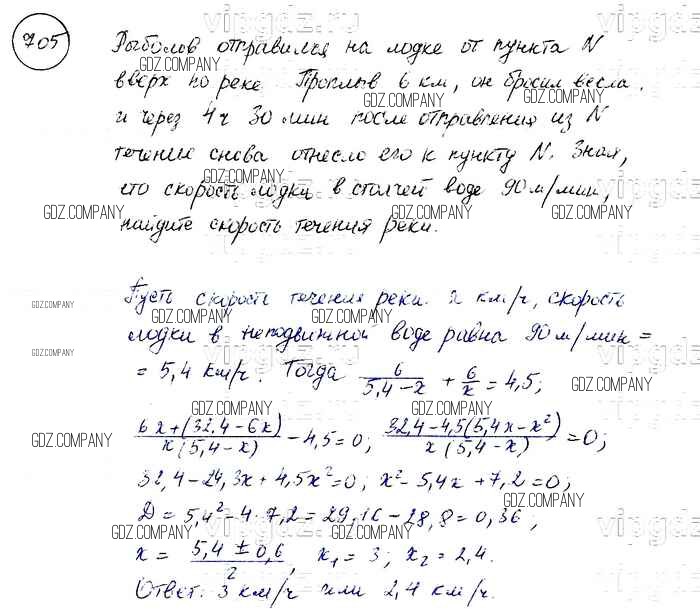 705
Рыболов отправился на лодке от пункта N
вверх по реке Проплыв 6 км, он бросил весла
и через 4ч 30 мин после отправления из N
течение снова отнесло его к пункту N. Зная,
что скорость лодки в стоячей воде 90 м/мин,
найдите скорость течения реки.
Пусть скорость течения реки. x км/ч, скорость
лодки в неподвижной воде равна 90 м/мин =
= 5,4 км/ч. Тогда 6/(5,4-x) + 6/x = 4,5;
(6x+(32,4-6x))/(x(5,4-x)) - 4,5=0; (32,4-4,5(5,4x-x²))/(x(5,4-x)) =0;
32,4-24,3x+4,5x²=0; x²-5,4x+7,2=0;
D=5,4²-4·7,2=29,16-28,8=0,36,
x = (5,4±0,6)/2, x₁=3; x₂=2,4.
Ответ: 3 км/ч или 2,4 км/ч.
GDZ.COMPANY
vipgdz.ru